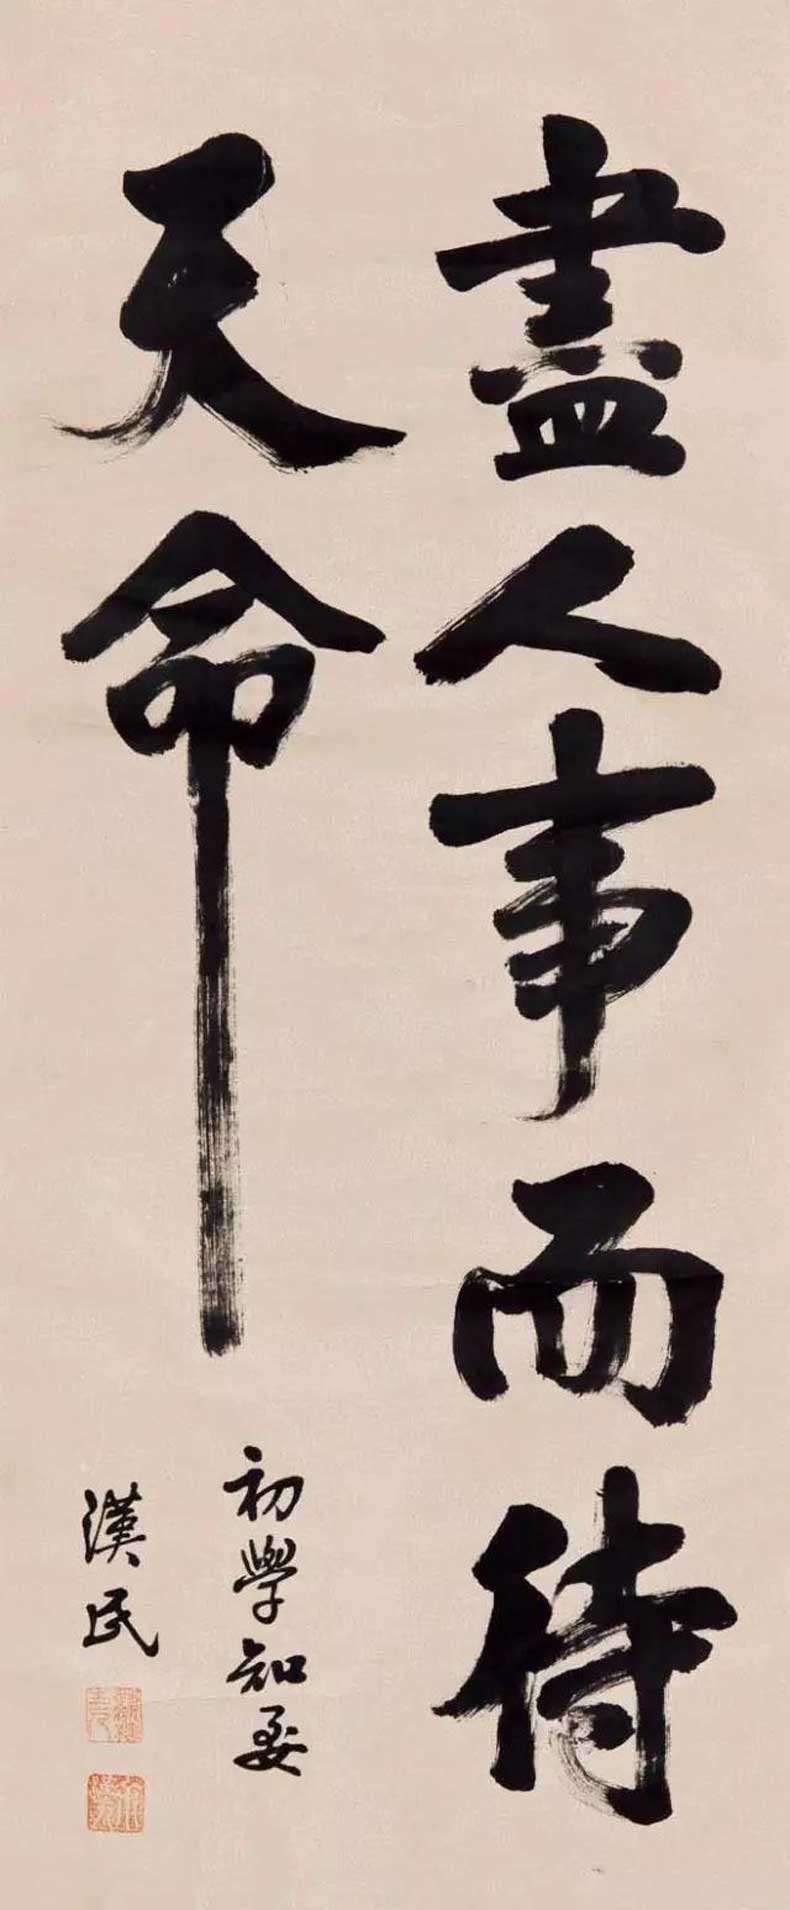 盡人事而待
天命
初學知要
漢民